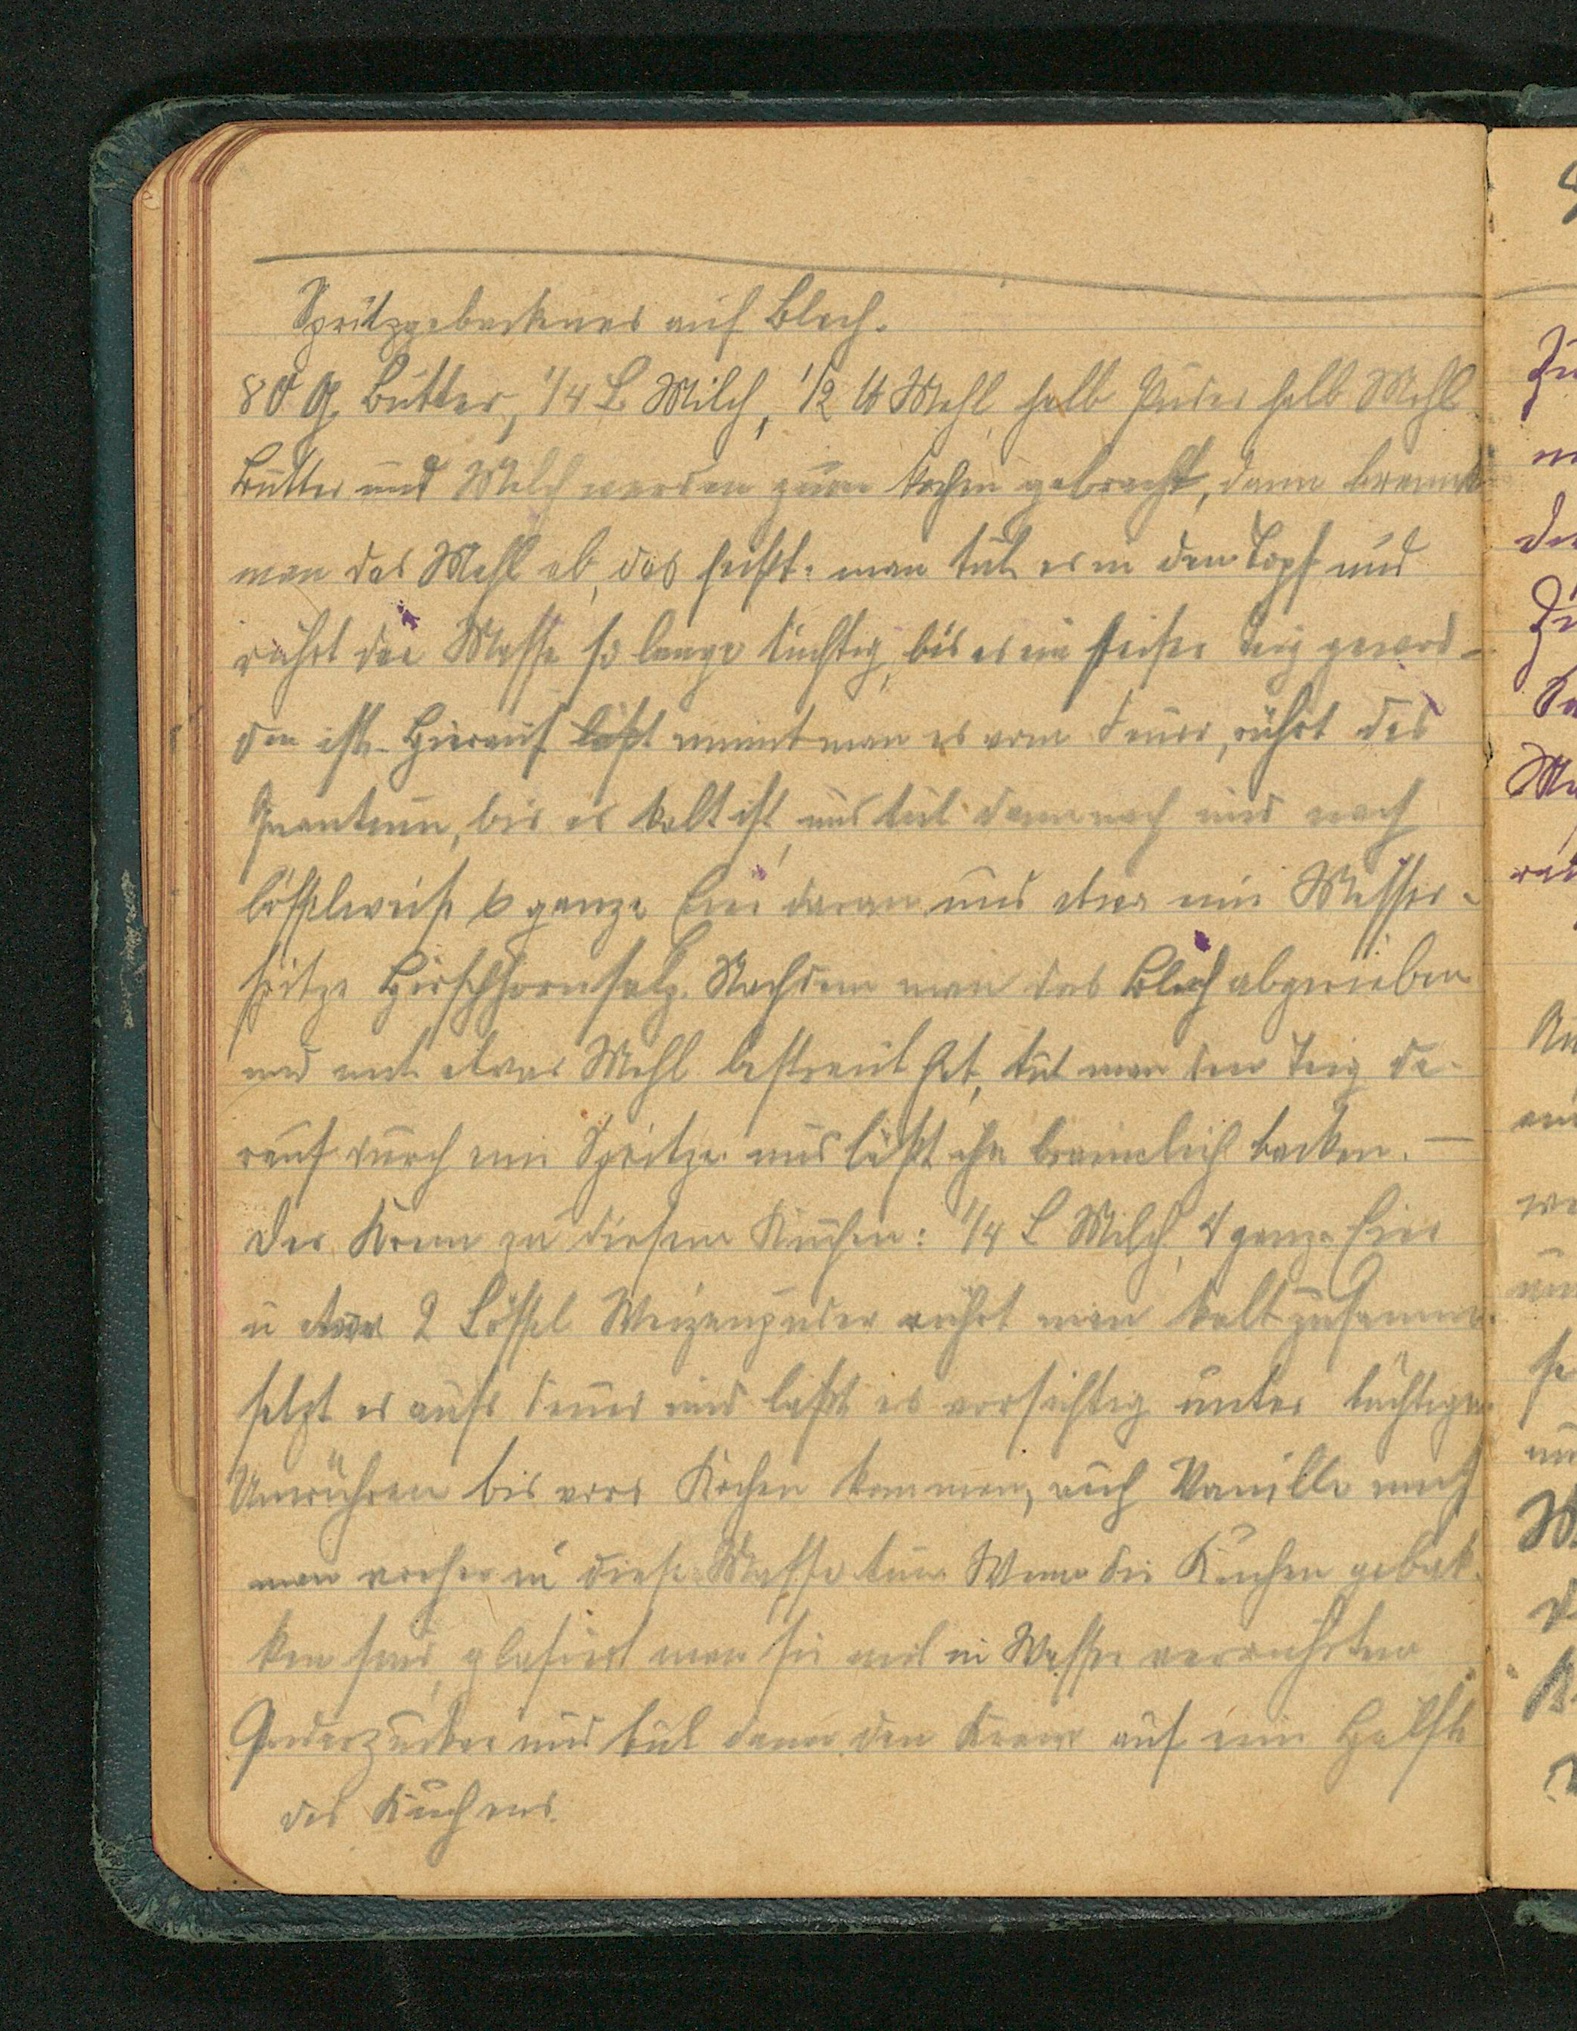 Spritzgebackenes auf Blech.
80 g Butter, 1/4 L Milch, 1/2 ℔ Mehl halb Puder halb Mehl
Butter und Milch werden zum Kochen gebracht, dann brennt
man das Mehl ab, das heißt: man tut es in den Topf und
rührt die Masse so lange tüchtig, bis es ein steifer Teig gewor-
den ist. Hierauf läßt nimmt man es vom Feuer, rührt das
Quantum, bis es kalt ist, und tut dann nach und nach
löffelweise 6 ganze Eier daran und etwa eine Messer-
spitze Hirschhornsalz. Nachdem man das Blech abgerieben
und mit etwas Mehl bestreut hat, tut man den Teig da-
rauf durch eine Spritze und läßt ihn bräunlich backen. —
Der Krem zu diesem Kuchen: 1/4 L Milch, 4 ganze Eier
u etwa 2 Löffel Weizenpuder rührt man kalt zusammen
setzt es aufs Feuer und läßt es vorsichtig unter tüchtigem
Umrühren bis vors Kochen kommen, auch Vanille muß
man vorher in diese Masse tun. Wenn die Kuchen gebak-
ken sind, glasiert man sie mit in Wasser verrührtem
Puderzucker und tut dann den Krem auf eine Hälfte
des Kuchens.